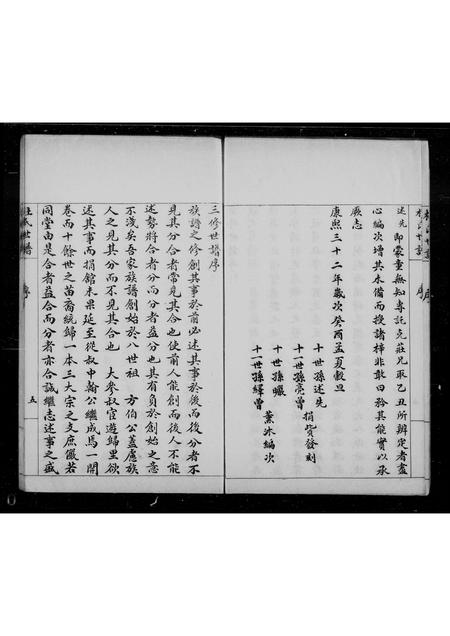 述先即蒙童無知專託克莊兄取乙丑所辦定者盡
心編次增其未備而授諸梓非敢曰矜其能實以承
厥志
康熙三十二年歲次癸酉孟夏穀旦
十世孫述先
十一世孫亮曾 捐貲發刻
十世孫曦
十一世孫繹曾 薰沐編次
三修世譜序
族譜之修創其事於前必述其事於後而後分者不
見其分合者常見其合也使前人能創而後人不能
述勢將合者分而分者益分也其有負於創始之意
不淺矣吾家族譜創始於八世祖 方伯公蓋慮族
人之見其分而不見其合也 大參叔宦遊歸里欲
述其事而捐館未果延至從叔中翰公繼成焉一開
卷而十餘世之苗裔統歸一本三大宗之支庶儼若
同堂由是合者益合而分者亦合誠繼志述事之盛
杜氏世譜 序 五